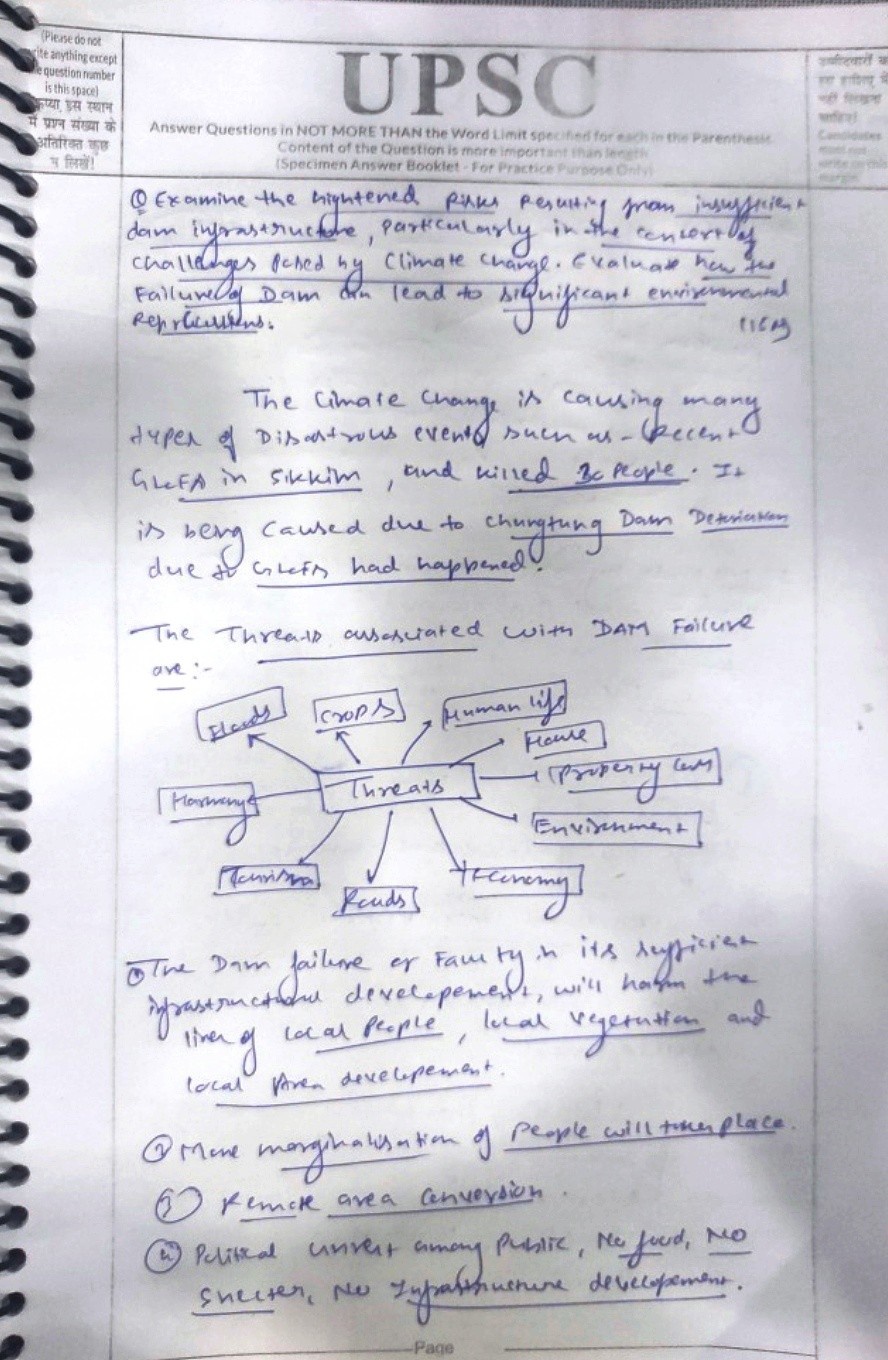 (Please do not
write anything except
the question number
is this space)
कृपया इस स्थान
में प्रश्न संख्या के
अतिरिक्त कुछ
न लिखें!
UPSC
Answer Questions in NOT MORE THAN the Word Limit specified for each in the Parenthesis.
Content of the Question is more important than length
(Specimen Answer Booklet - For Practice Purpose Only)
उम्मीदवारों को
इस हाशिए में
नहीं लिखना
चाहिए!
Candidates
must not
write on this
margin
Q Examine the hightened risks resulting from insufficient
dam infrastructure, particularly in the context of
challenges posed by Climate Change. Evaluate how the
Failure of Dam can lead to significant environmental
The Climate Change is causing many
types of Disastrous events such as - (Recent
in Sikkim, and killed people. It
is being caused due to chungtung Dam
due to had happened.
The Threats associated with DAM Failure
are:-
Floods
crops
Human life
House
Property loss
Threats
Harmony
Environment
Tourism
Roads
Economy
① The Dam failure or Faulty in its sufficient
infrastructural developement, will harm the
lives of local people, local vegetation and
local Area developement.
② More marginalisation of people will taken place.
③ Remote area conversion.
④ Political unrest among public, No food, No
shelter, No Infrastructure developement.
Page